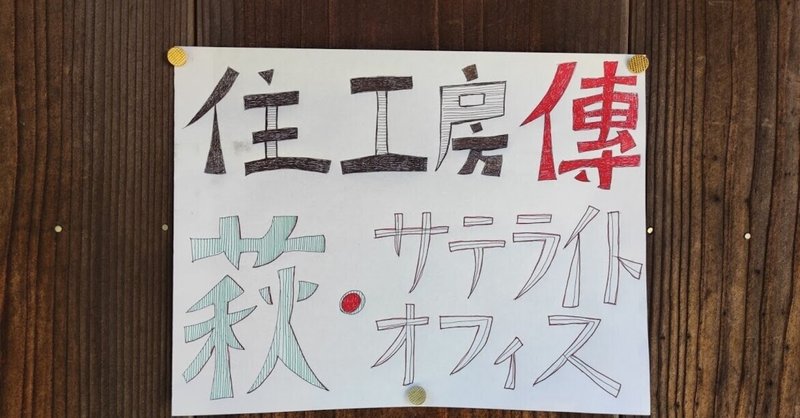 住工房傳
萩・サテライト
オフィス